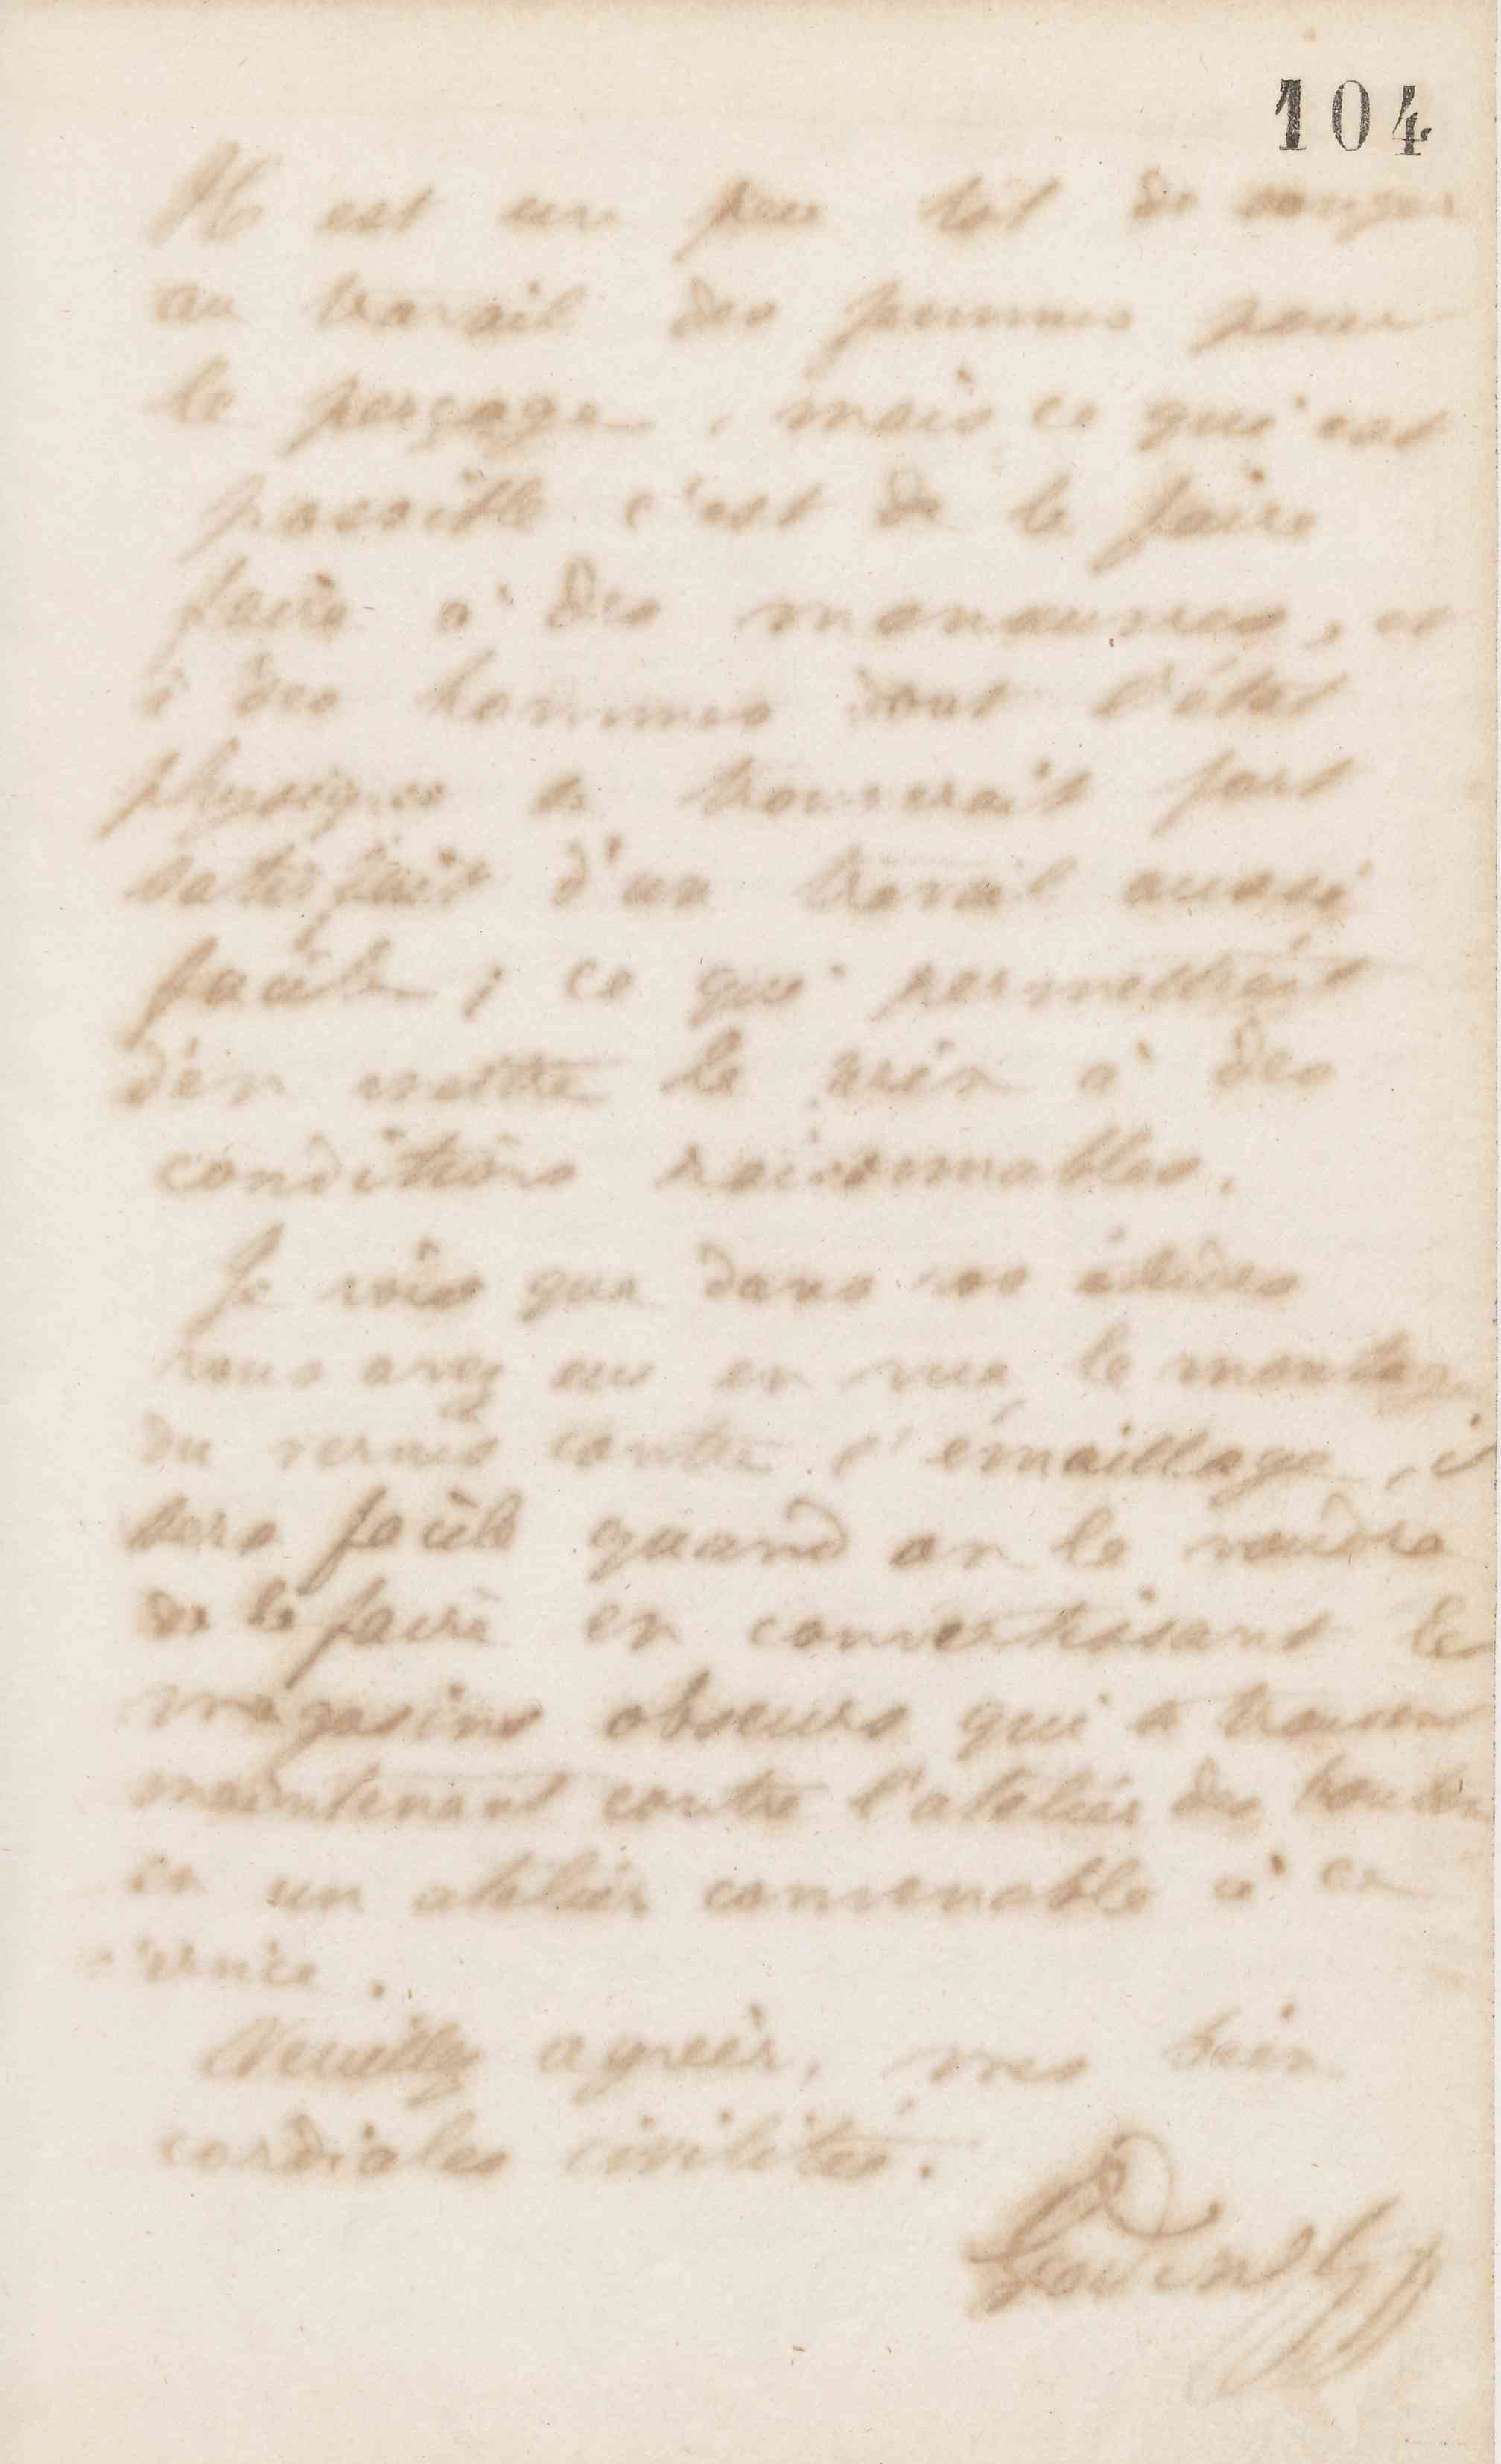 104
Il est un peu tôt de songer
au travail des femmes pour
le perçage, mais ce qui est
possible c'est de le faire
faire à des manœuvres, et
à des hommes dont l'état
physique se trouverait fort
satisfait d'un travail aussi
facile ; ce qui permettrait
d'en mettre le prix à des
conditions raisonnables.
Je vois que dans vos études
vous avez eu en vue le montage
du vernis contre l'émaillage, il
sera facile quand on le voudra
de le faire en convertissant les
magasins obscurs qui se trouvent
maintenant contre l'atelier des
en un atelier convenable à ce
service.
Veuillez agréer, mes bien
cordiales civilités.
Godin